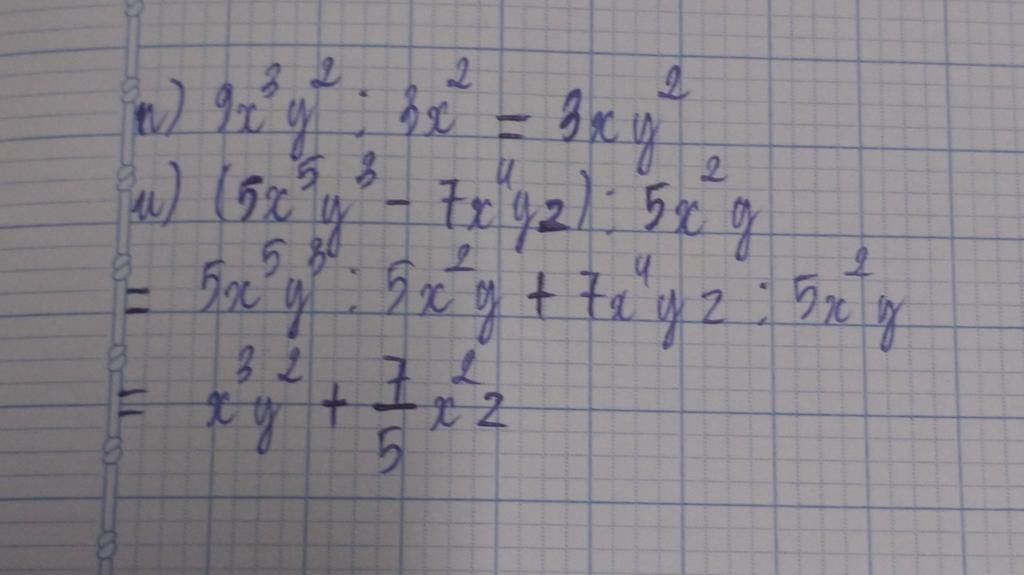 n) 9x³y² : 3x² = 3xy²
u) (5x⁵y³ - 7x⁴yz) : 5x²y
= 5x⁵y³ : 5x²y + 7x⁴yz : 5x²y
= x³y² + 7/5 x²z